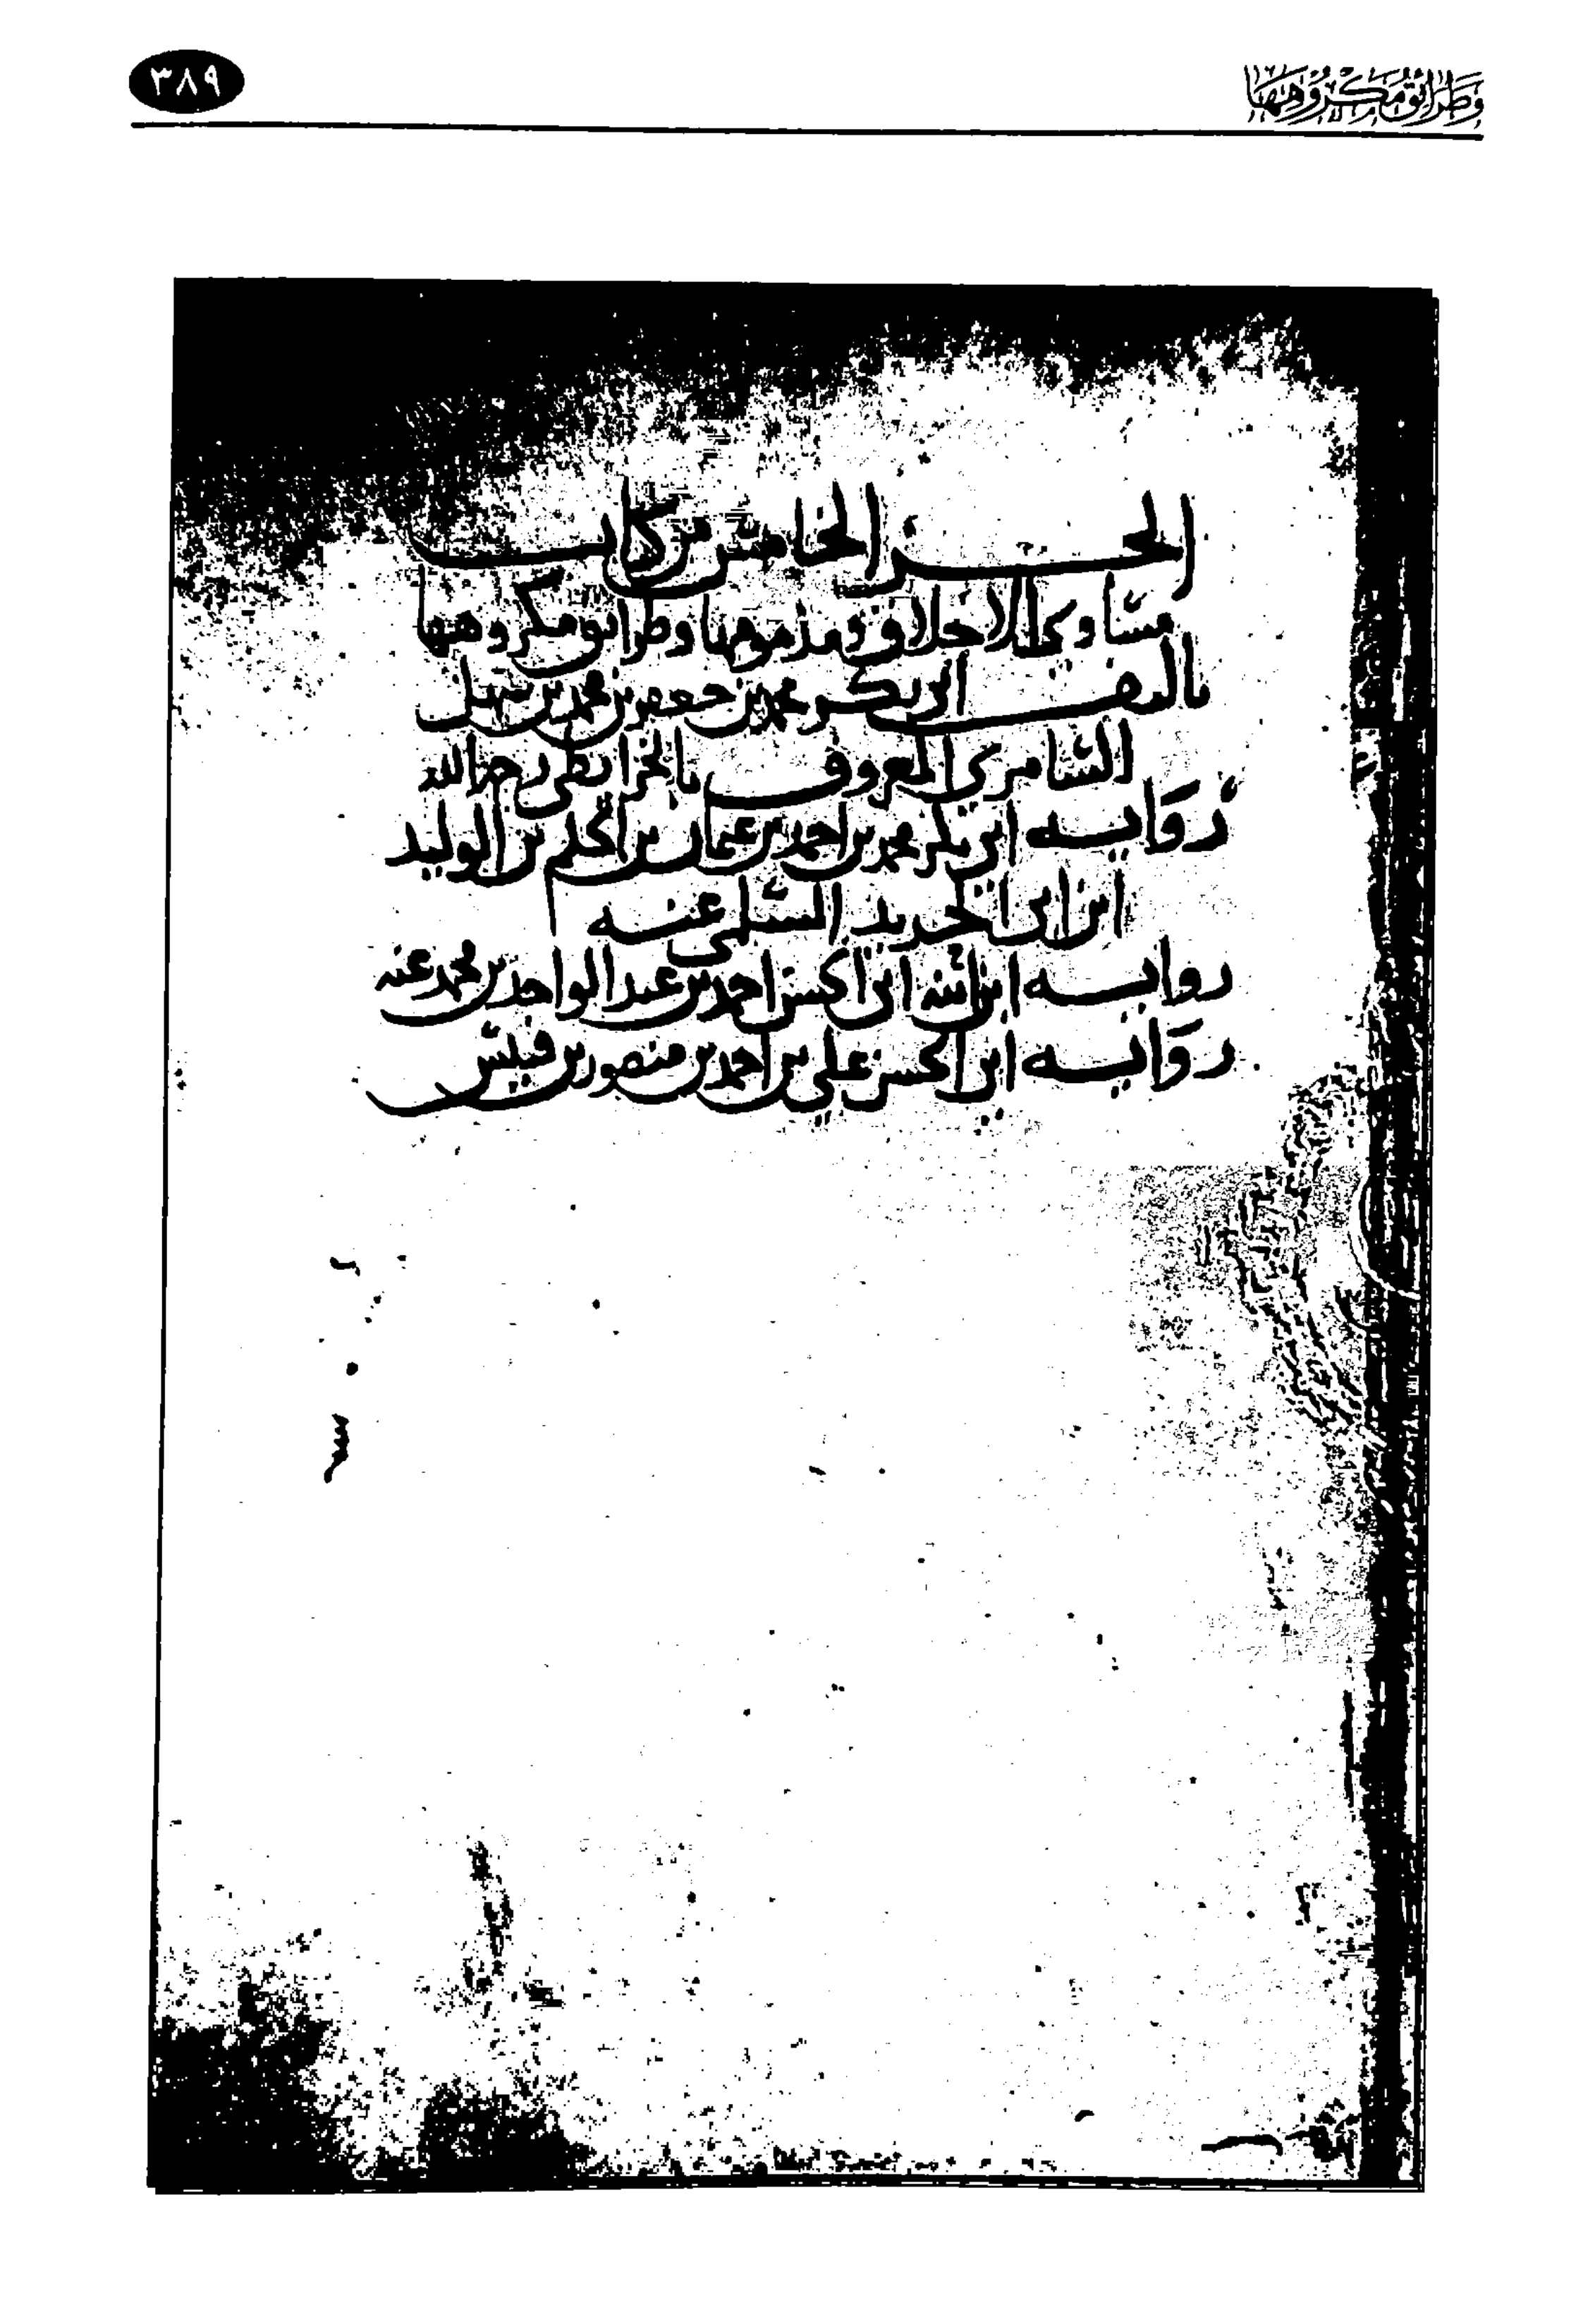 وطرائق مكروهها
٣٨٩
الجزء الخامس من كتاب
مساوئ الاخلاق ومذمومها وطرائق مكروهها
تاليف ابي بكر محمد بن جعفر بن محمد بن سهل
السامري المعروف بالخرايطي رحمه الله
رواية ابي بكر محمد بن احمد بن عثمان بن الحكم بن الوليد
ابن ابي الحديد السلمي عنه
رواية ابن ابنه ابي الحسن احمد بن عبد الواحد بن محمد عنه
رواية ابي الحسن علي بن احمد بن منصور بن قبيس